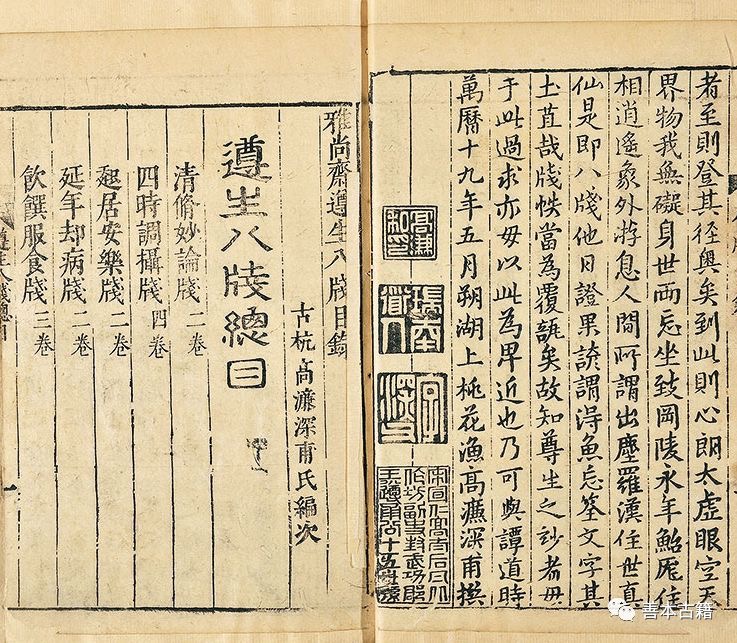 者至則登其徑奧矣到此則心朗太虛眼空天
界物我無礙身世兩忘坐致岡陵永年鮐庞住
相逍遙象外游息人間所謂出塵羅漢住世真
仙是即八牋他日證果諺謂淂魚忘筌文字其
土苴哉牋帙當為覆瓿矣故知尊生之妙者毋
于此過求亦毋以此為卑近也乃可與譚道時
萬曆十九年五月朔湖上桃花漁高濂深甫撰
高濂
瑞南
道人
深
雅尚齋遵生八牋目錄
古杭高濂深甫氏編次
遵生八牋總目
清脩妙論牋二卷
四時調攝牋四卷
起居安樂牋二卷
延年却病牋二卷
飲饌服食牋三卷
遵生八牋總目
善本古籍